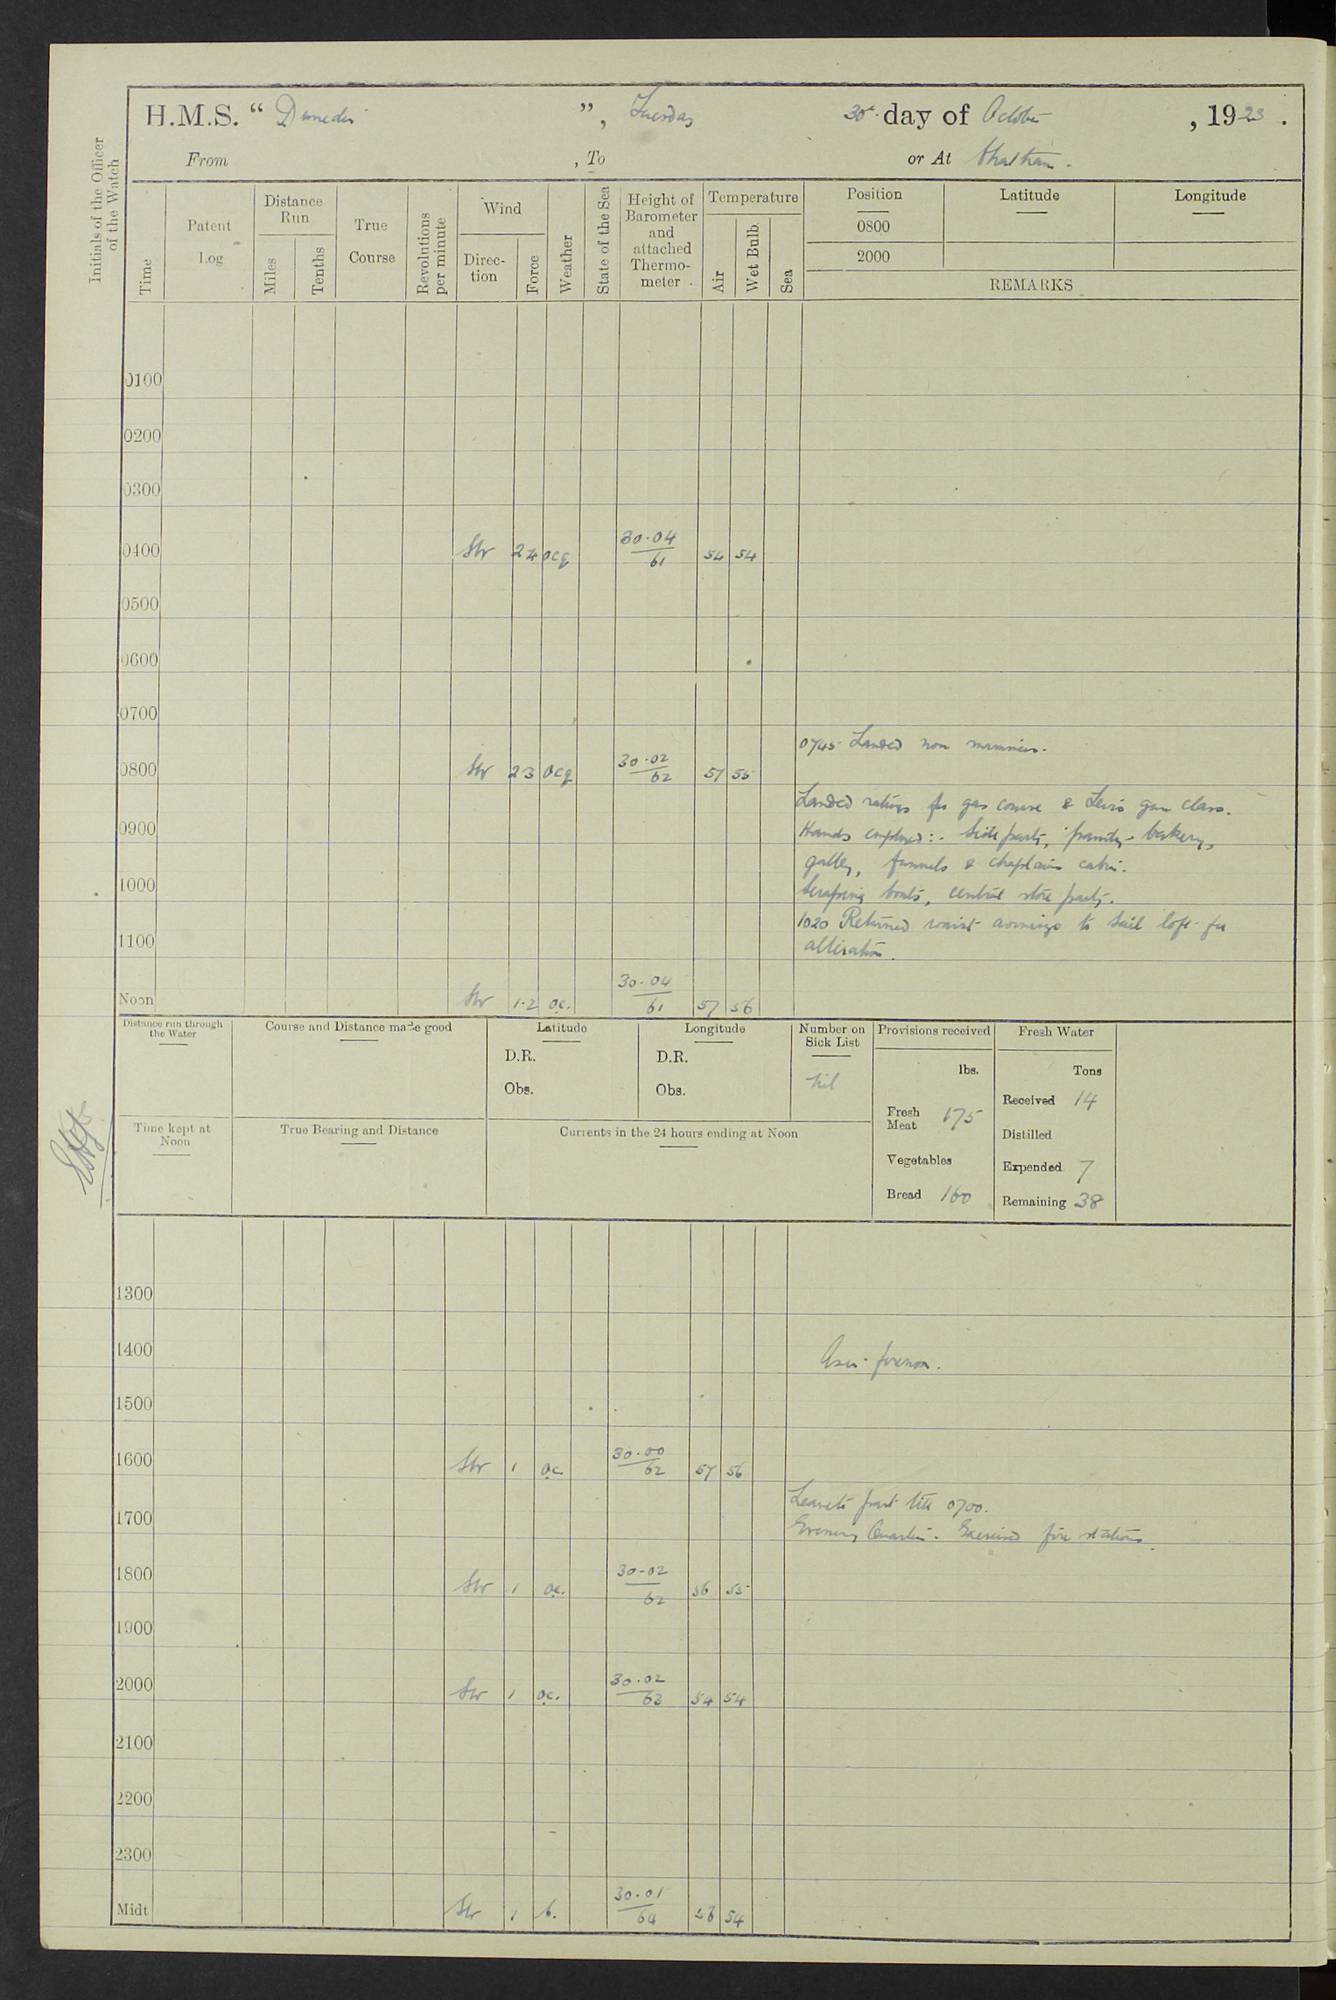 H.M.S. “ Dunedin ”, Tuesday 30th day of October, 1923.
From , To or At Chatham.
Initials of the Officer of the Watch
Time
Patent Log
Distance Run
Miles
Tenths
True Course
Revolutions per minute
Wind
Direction
Force
Weather
State of the Sea
Height of Barometer and attached Thermometer
Temperature
Air
Wet Bulb
Sea
Position Latitude Longitude
0800
2000
REMARKS
0100
0200
0300
0400 SW 2-4 ocq 30.04/61 54 54
0500
0600
0700
0745 Landed non swimmers.
0800 SW 2-3 ocq 30.02/62 57 55
Landed ratings for gas course & Lewis gun class.
0900 Hands employed:- Side party, painting bakery,
galley, funnels & chaplains cabin.
1000 Scraping boats, central store party.
1020 Returned awnings to Sail loft for
1100 alteration.
Noon SW 1-2 oc. 30.04/61 57 56
Distance run through the Water
Course and Distance made good
Latitude
D.R.
Obs.
Longitude
D.R.
Obs.
Number on Sick List
Nil
Provisions received
lbs.
Fresh Meat 175
Vegetables
Bread 160
Fresh Water
Tons
Received 14
Distilled
Expended 7
Remaining 38
Time kept at Noon
True Bearing and Distance
Currents in the 24 hours ending at Noon
1300
1400 As in forenoon.
1500
1600 SW 1 oc. 30.00/62 57 56
Leave to part till 0700.
1700 Evening Quarters. Exercised fire stations.
1800 SW 1 oc. 30.02/62 56 55
1900
2000 SW 1 oc. 30.02/63 54 54
2100
2200
2300
Midt SW 1 b. 30.01/64 54